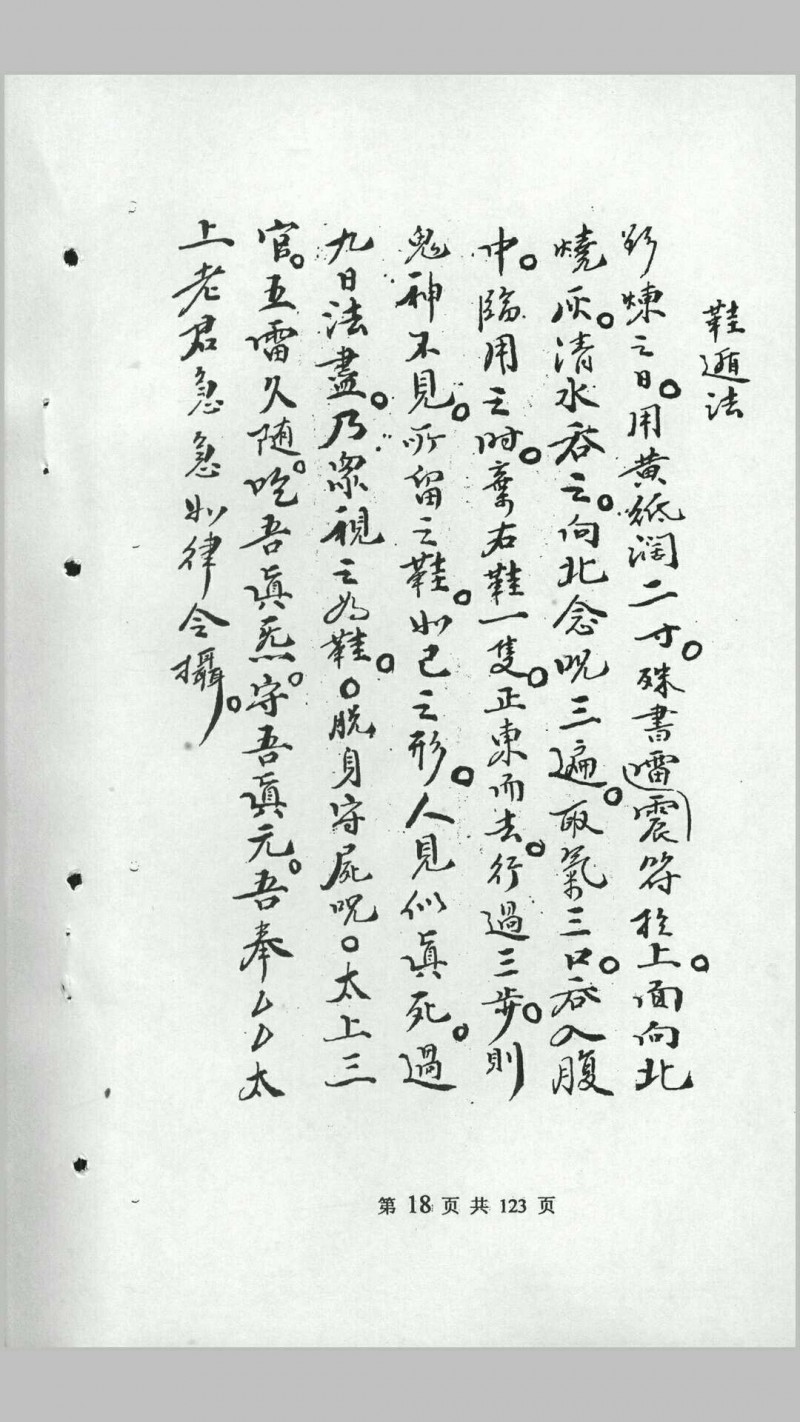 鞋遁法
煉之日。用黃紙濶二寸。殊書雷震符於上。面向北
燒灰。清水吞之。向北念呪三遍。取氣三口。吞入腹
中。臨用之时。棄右鞋一隻。正東而去。行過三步。則
鬼神不見。所留之鞋。如己之形。人見似眞死。過
九日法盡。乃衆視之为鞋。○脱身守屍呪○太上三
官。五雷久随。吃吾眞炁。守吾眞元。吾奉太
上老君急急如律令攝。
第 18 页 共 123 页